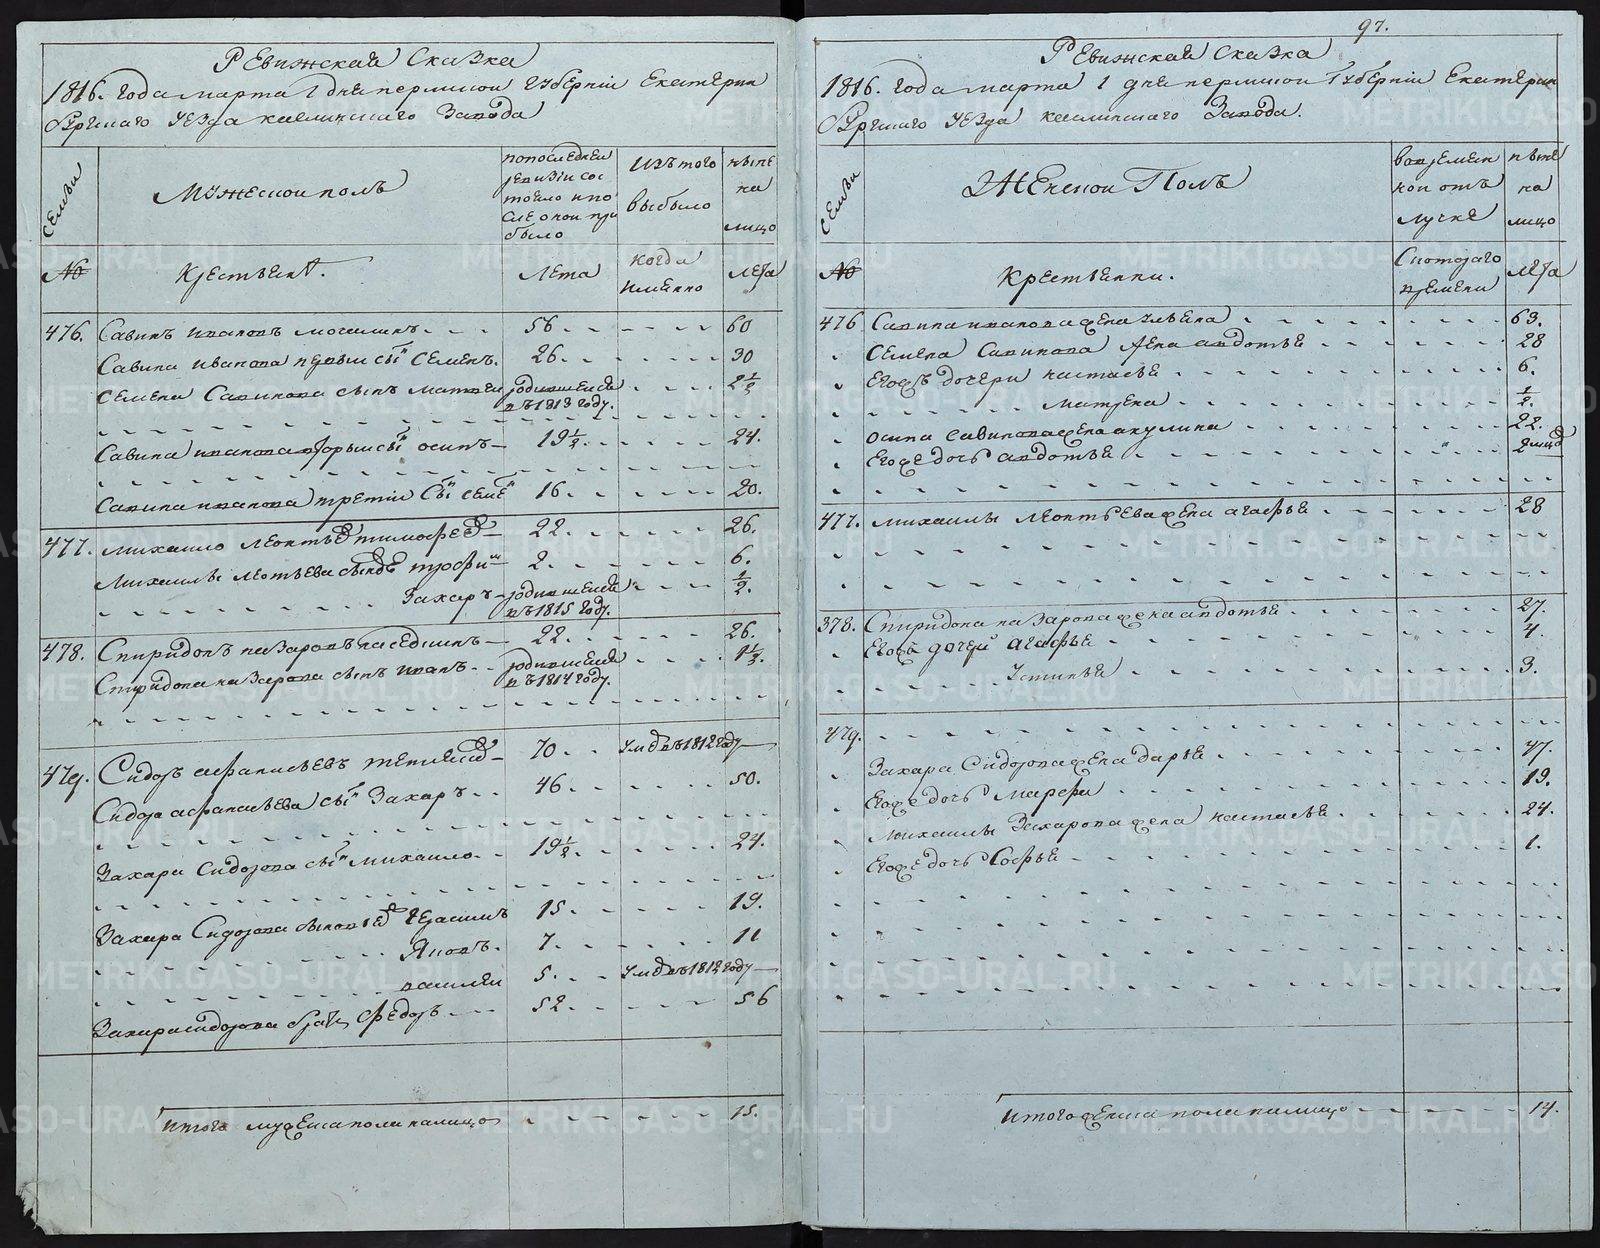 Ревижская Сказка
1816. года марта 1 дня пермской губернии Екатерин
бургскаго уезда каслинскаго Завода
Семьи
Мужескои полъ
попоследней ревизии состояло и после онои прибыло
Изъ того выбыло
ныне на лицо
№
Крестьянъ.
Лета
когда именно
лета
476. Савинъ ивановъ 56 60
Савина иванова первыи сынъ Семенъ. 26 30
Семена Савинова сынъ матвеи родившеися въ 1813 году. 2½
Савина иванова вторыи сынъ осипъ 19½ 24.
Савина иванова третии сынъ семенъ 16. 20.
477. михаило леонтьевъ тимофеевъ 22. 26.
Михаилы леонтьева сыновья трофимъ 2. 6.
Захаръ родившеися въ 1815 году. ½.
478. Спиридонъ назаровъ 22. 26.
Спиридона назарова сынъ иванъ родившеися въ 1814 году. 1½.
479. Сидоръ афанасьевъ 70 умре въ 1812 году
Сидора афанасьева сынъ Захаръ 46. 50.
Захара Сидорова сынъ михаило 19½ 24.
Захара Сидорова сыновья герасимъ 15. 19.
Яковъ. 7. 11
василеи 5. умре въ 1812 году
Захара сидорова братъ Федоръ 52. 56
итого мужеска пола налицо 15.
97.
Ревижская Сказка
1816. года марта 1 дня пермскои губернии Екатерин
бургскаго уезда каслинскаго Завода.
Семьи
Женскои Полъ
во временнои отлучке
ныне на лицо
№
Крестьянки.
С котораго времени
лета
476 Савина иванова жена ульяна 63.
Семена Савинова жена авдотья 28
Егожъ дочери настасья 6.
матрена ½.
осипа савинова жена акулина 22.
Егоже дочь авдотья
477. михаилы леонтьева жена агафья 28
378. Спиридона назарова жена авдотья 27.
Егожъ дочери агафья 4.
устинья 3.
479.
Захара Сидорова жена дарья 47.
Егоже дочь марфа 19.
михаилы Захарова жена настасья 24.
Егоже дочь Софья 1.
итого женска пола налицо 14.
METRIKI.GASO-URAL.RU